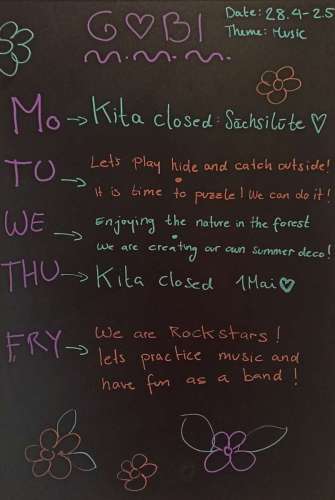 GOBI
Date: 28.4-2.5
Theme: Music
Mo → Kita closed: Sächsilüte ♡
TU → Lets play hide and catch outside!
It is time to puzzle! We can do it!
WE → Enjoying the nature in the forest
We are creating our own summer deco!
THU → Kita closed 1Mai ♡
FRY → We are Rockstars!
lets practice music and
have fun as a band!